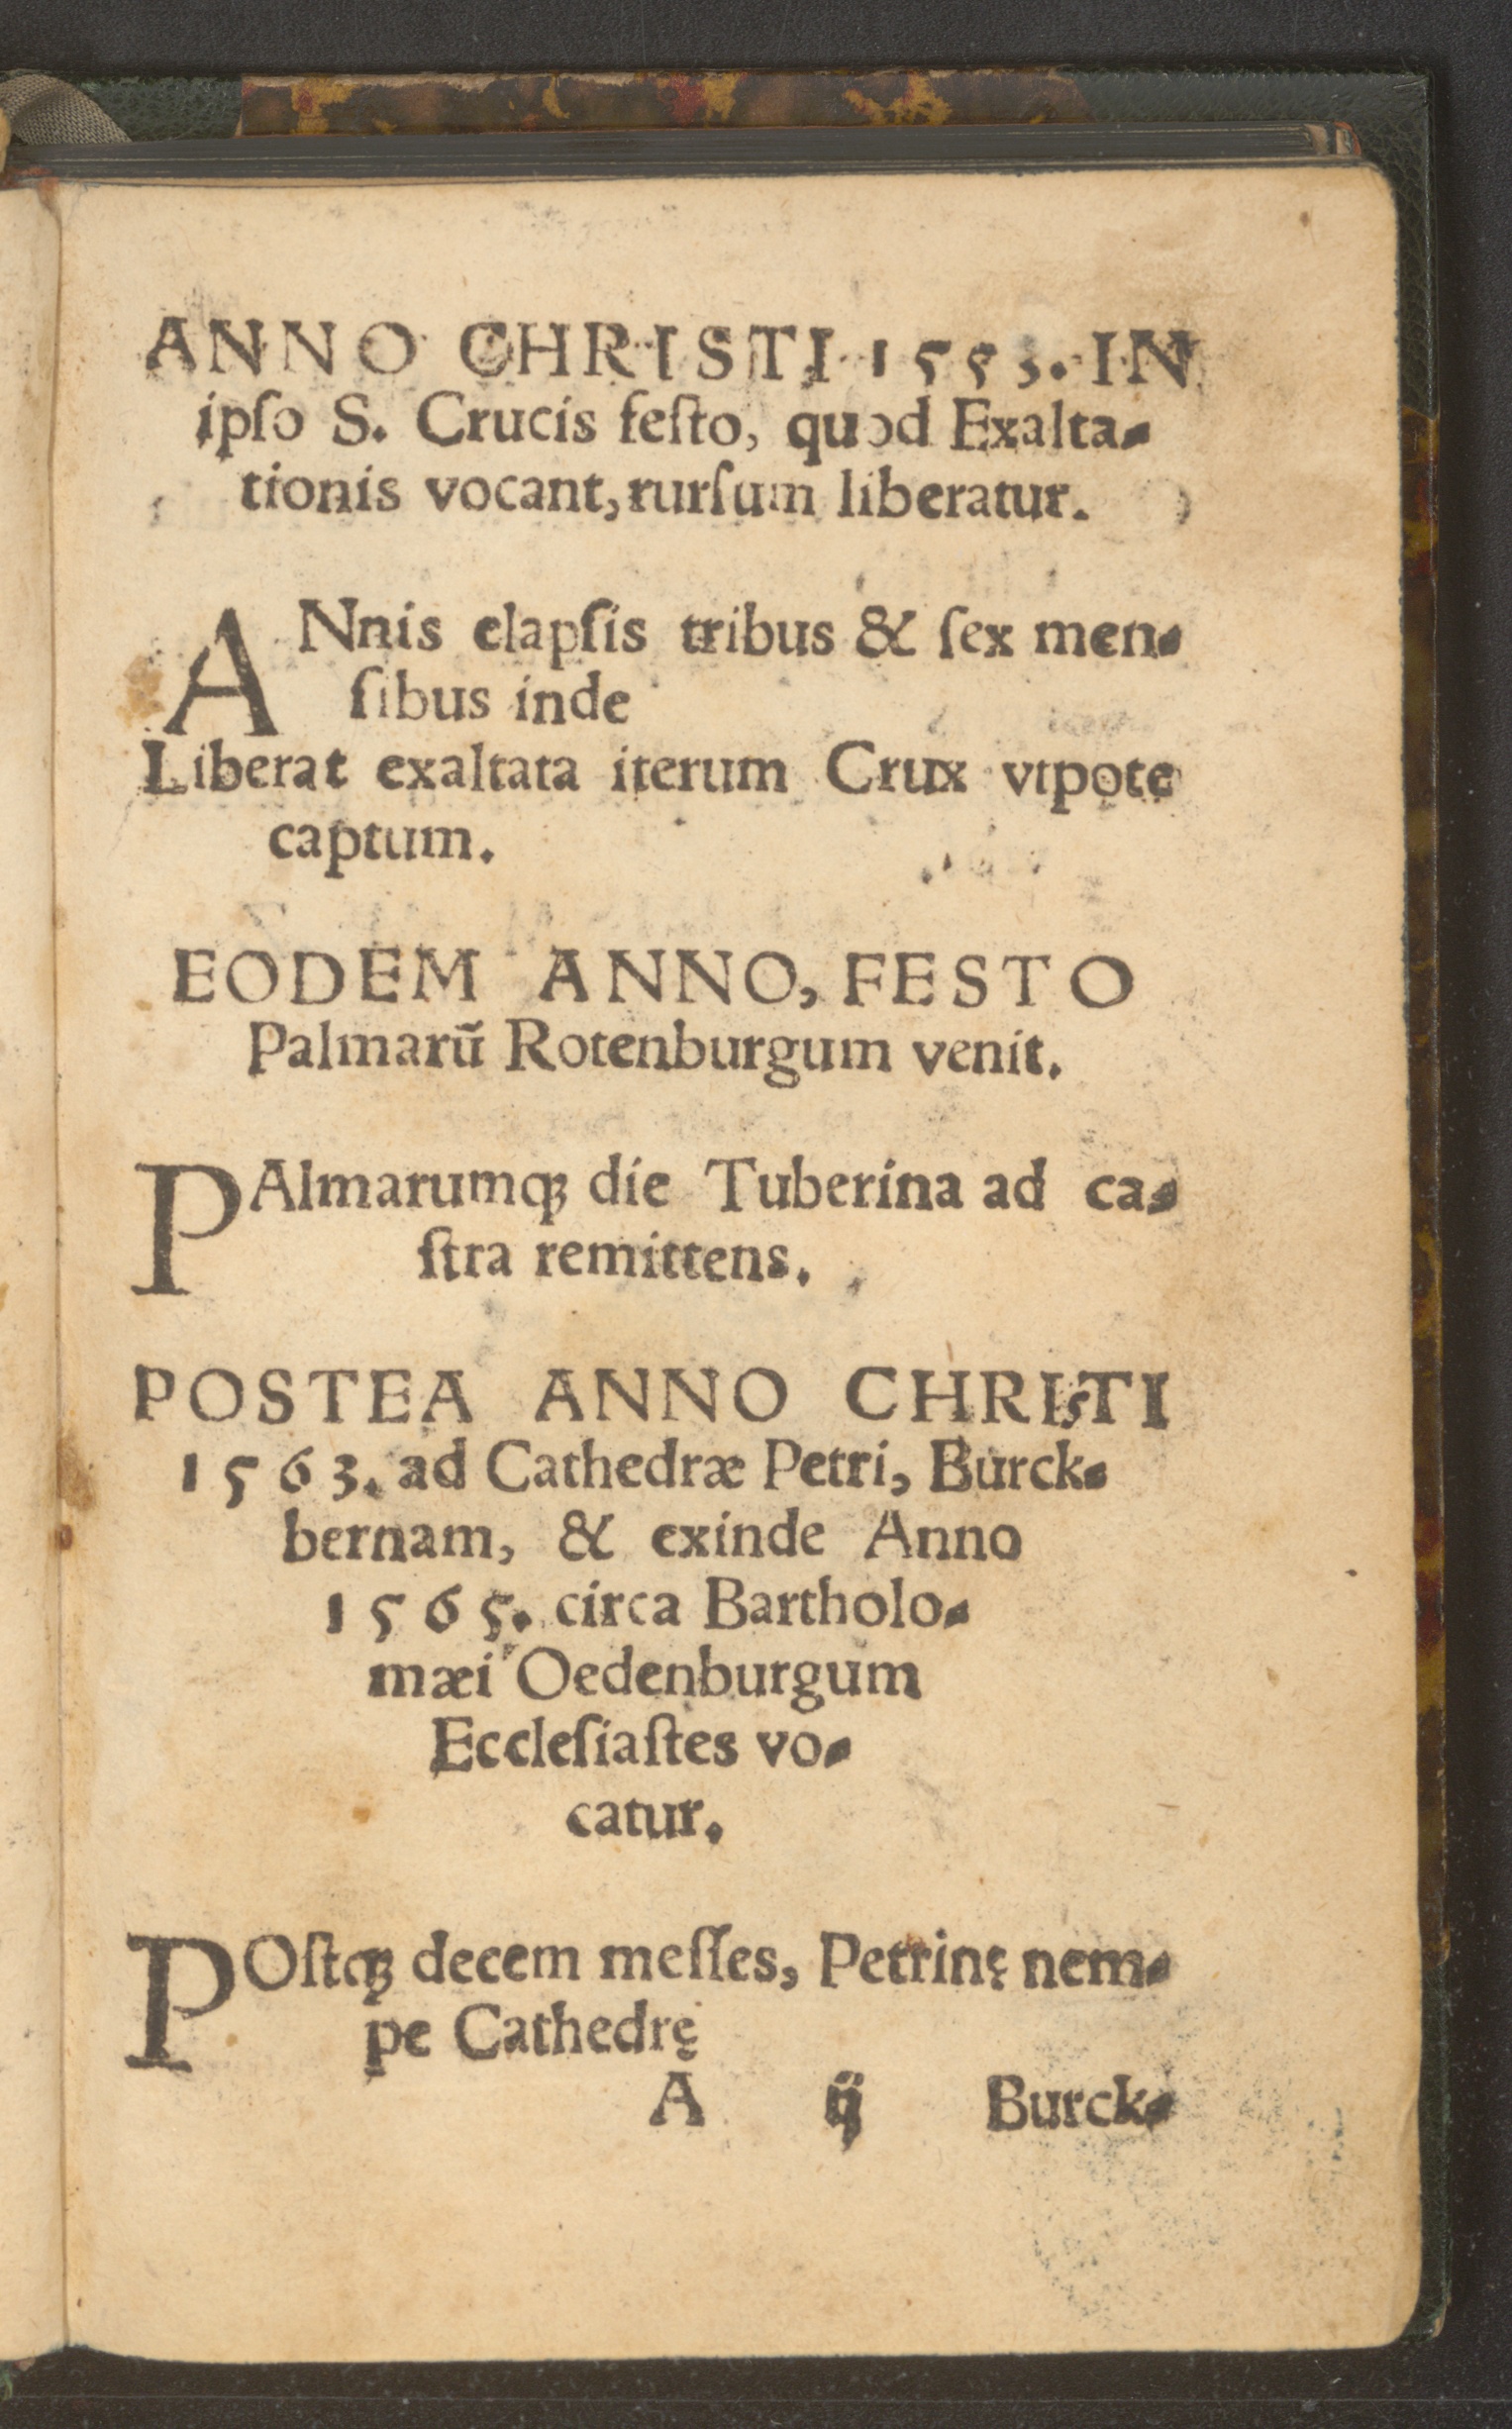 ANNO CHRISTI 1553. IN
ipſo S. Crucis feſto, quod Exalta-
tionis vocant, rurſum liberatur.
ANnis elapſis tribus & ſex men-
ſibus inde
Liberat exaltata iterum Crux vtpote
captum.
EODEM ANNO, FESTO
Palmarũ Rotenburgum venit.
PAlmarumqꝫ die Tuberina ad ca-
ſtra remittens.
POSTEA ANNO CHRISTI
1563. ad Cathedræ Petri, Burck-
bernam, & exinde Anno
1565. circa Bartholo-
mæi Oedenburgum
Eccleſiaſtes vo-
catur.
POſtqꝫ decem meſſes, Petrinę nem-
pe Cathedrę
A ij Burck-